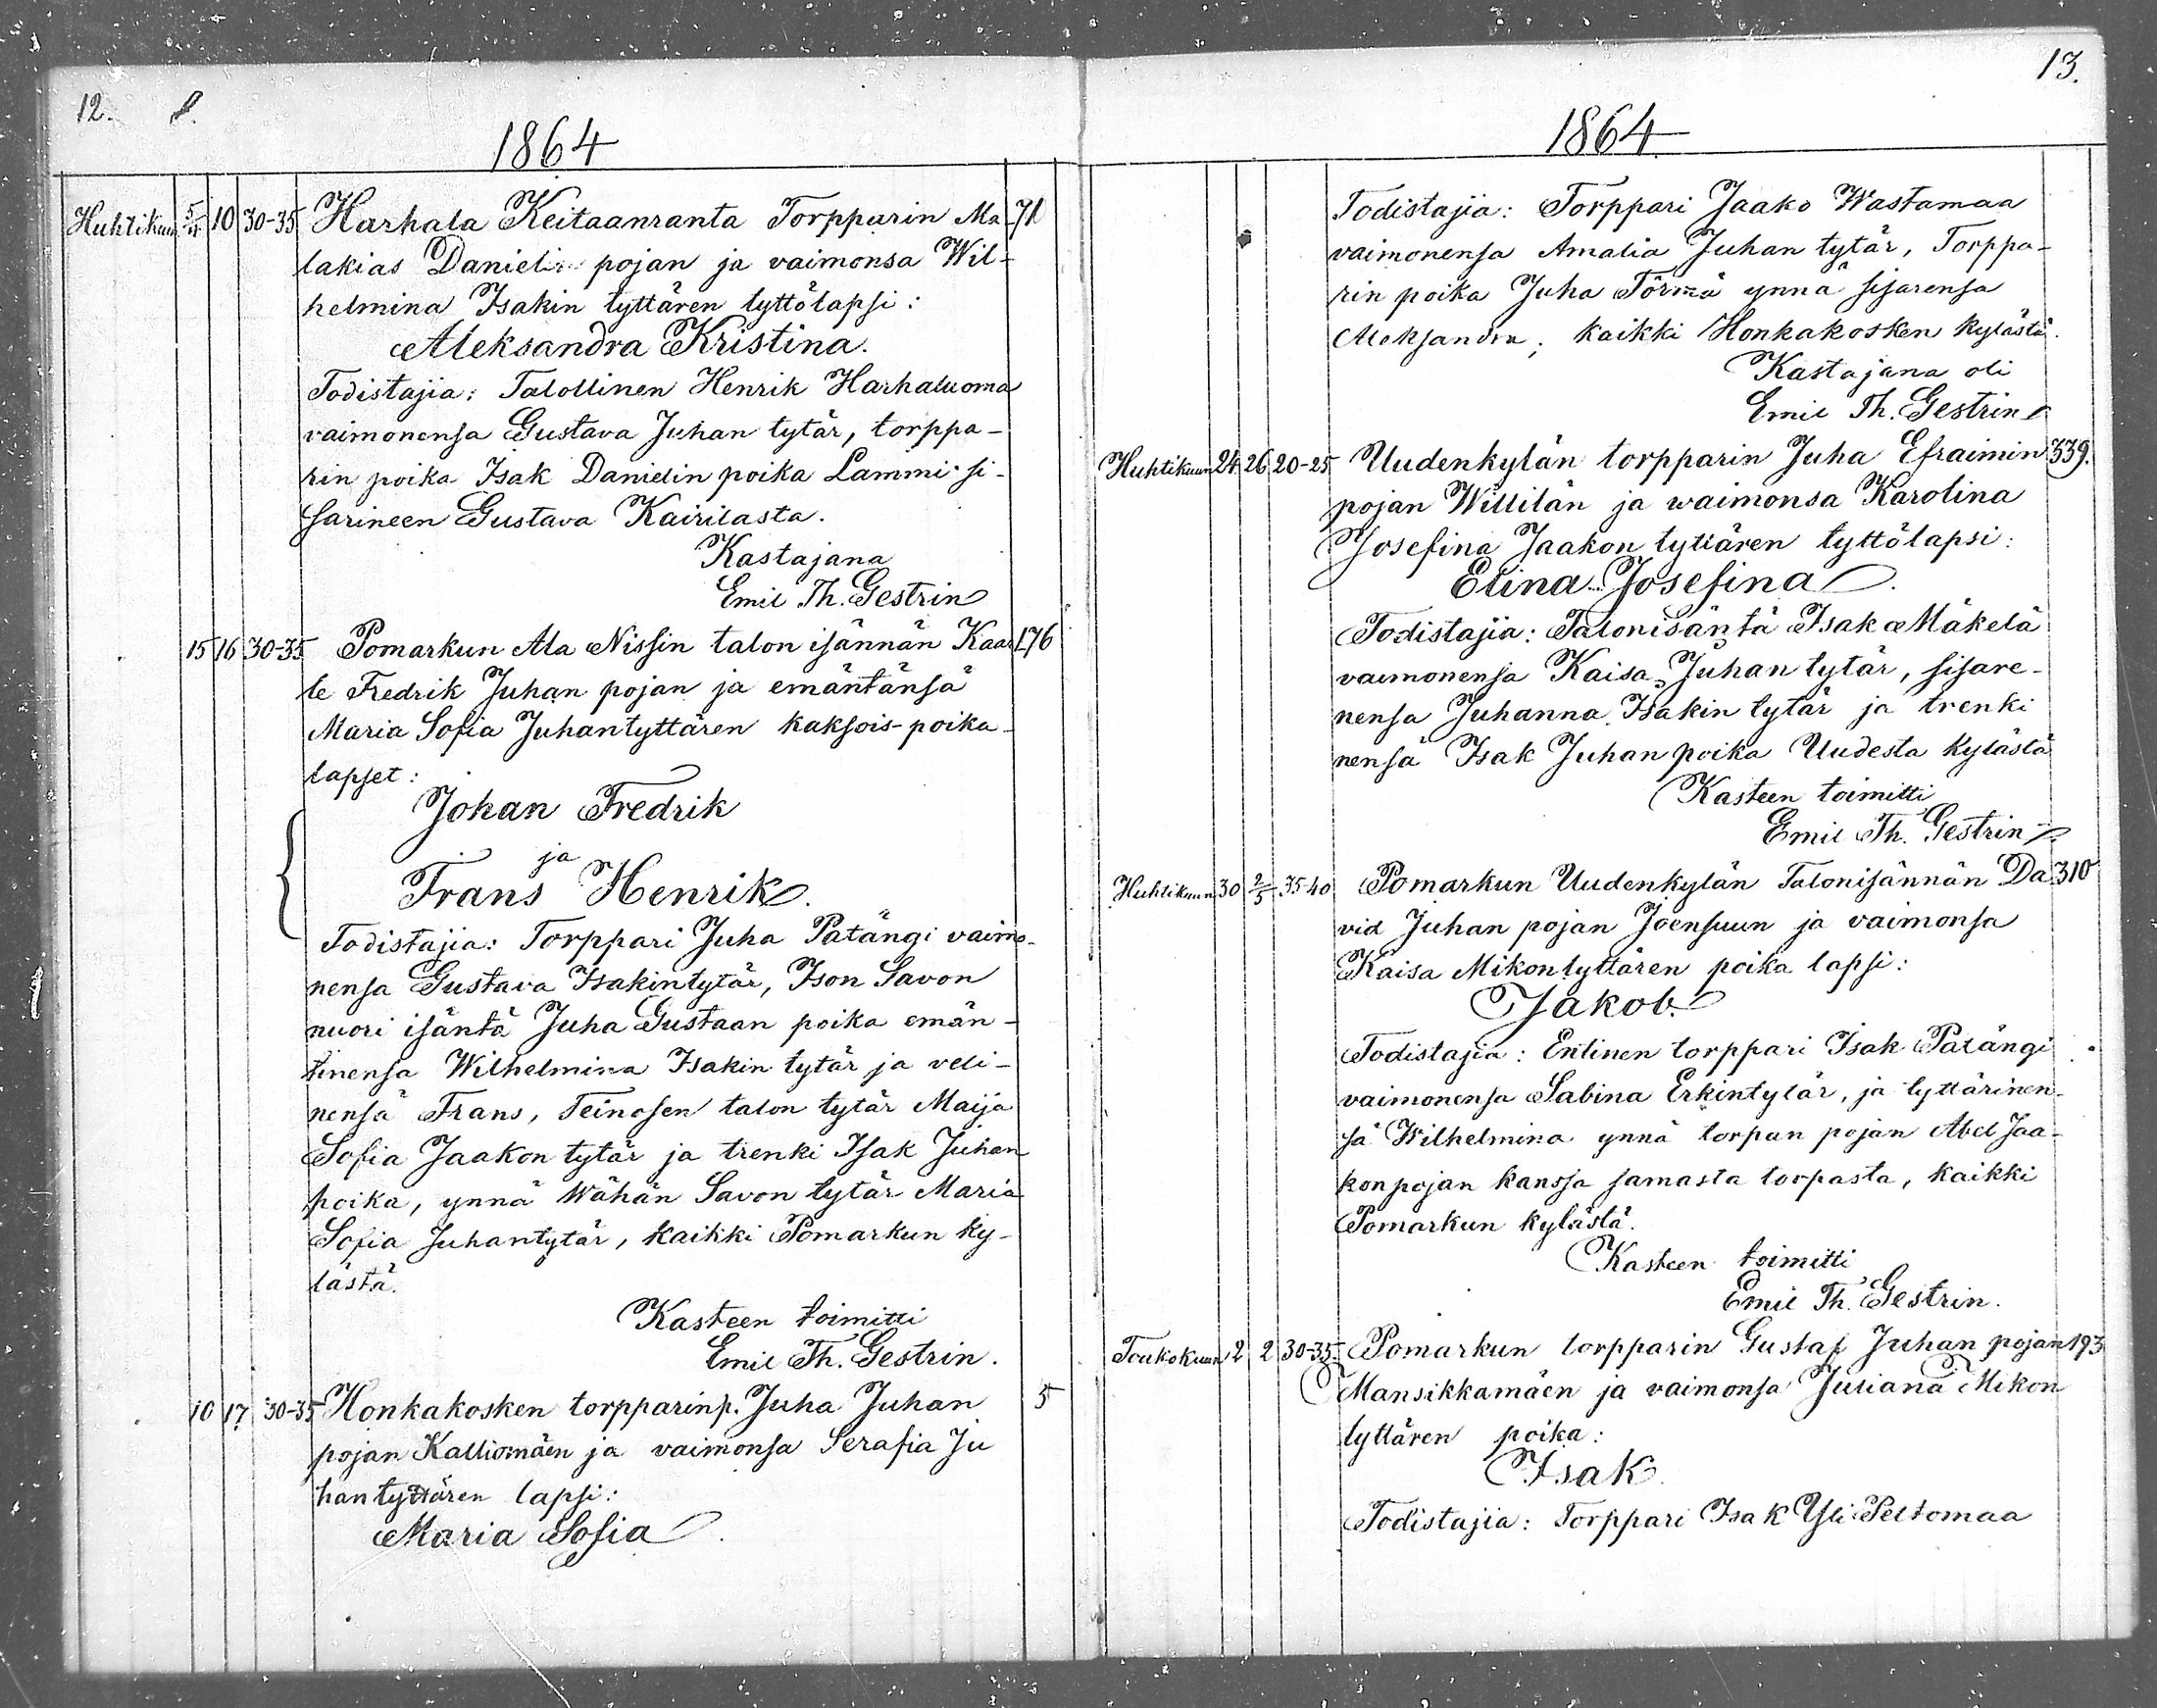 12.
1864
Huhtikuun 5/4 10 30-35 Harhala Keitaanranta Torpparin Ma- 71
lakias Danielin pojan ja vaimonsa Wil-
helmina Isakin tyttären tyttölapsi:
Aleksandra Kristina.
Todistajia: Talollinen Henrik Harhaluoma
vaimonensa Gustava Juhan tytär, torppa-
rin poika Isak Danielin poika Lammi si-
sarineen Gustava Kairilasta.
Kastajana
Emil Th. Gestrin
15 16 30-35 Pomarkun Ala Nissin talon isännän Kaar- 176
le Fredrik Juhan pojan ja emäntänsä
Maria Sofia Juhantyttären kaksois-poika-
lapset:
Johan Fredrik
ja
Frans Henrik.
Todistajia: Torppari Juha Patängi vaimo-
nensa Gustava Isakintytär, Ison Savon
nuori isäntä Juha Gustaan poika emän-
tinensa Wilhelmina Isakin tytär ja veli-
nensä Frans, Teinosen talon tytär Maija
Sofia Jaakon tytär ja trenki Isak Juhan
poika, ynnä Wähän Savon tytär Maria
Sofia Juhantytär, kaikki Pomarkun ky-
lästä.
Kasteen toimitti
Emil Th. Gestrin.
10 17 30-35 Honkakosken torpparin p. Juha Juhan 5
pojan Kalliomäen ja vaimonsa Serafia Ju
han tyttären lapsi:
Maria Sofia.
13.
1864
Todistajia: Torppari Jaako Wastamaa
vaimonensa Amalia Juhan tytär, Torppa-
rin poika Juha Törmä ynnä sisarensa
Aleksandra, kaikki Honkakosken kylästä.
Kastajana oli
Emil Th. Gestrin
Huhtikuun 24 26 20-25 Uudenkylän torpparin Juha Efraimin 339.
pojan Willilän ja waimonsa Karolina
Josefina Jaakon tyttären tyttölapsi:
Elina Josefina.
Todistajia: Talonisäntä Isak Mäkelä
vaimonensa Kaisa Juhan tytär, sisare-
nensa Juhanna Isakin tytär ja trenki
nensä Isak Juhan poika Uudesta kylästä
Kasteen toimitti
Emil Th. Gestrin
Huhtikuun 30 2/5 35-40 Pomarkun Uudenkylän Talonisännän Da- 310
vid Juhan pojan Joensuun ja vaimonsa
Kaisa Mikontyttären poika lapsi:
Jakob.
Todistajia: Entinen torppari Isak Patängi
vaimonensa Sabina Erkintytär, ja tyttärinen-
sä Wilhelmina ynnä torpan pojan Abel Jaa-
kon pojan kanssa samasta torpasta, kaikki
Pomarkun kylästä.
Kasteen toimitti
Emil Th. Gestrin.
Toukokuun 2 2 30-35 Pomarkun torpparin Gustaf Juhan pojan 193
Mansikkamäen ja vaimonsa Juliana Mikon
tyttären poika:
Isak.
Todistajia: Torppari Isak Yli-Peltomaa